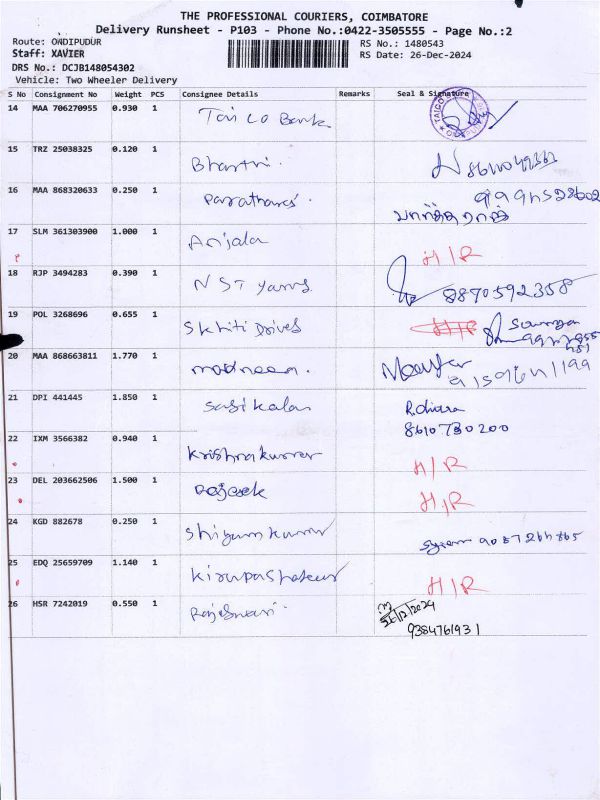 THE PROFESSIONAL COURIERS, COIMBATORE
Delivery Runsheet - P103 - Phone No.:0422-3505555 - Page No.:2
Route: ONDIPUDUR
RS No.: 1480543
Staff: XAVIER
RS Date: 26-Dec-2024
DRS No.: DCJB148054302
Vehicle: Two Wheeler Delivery
S No Consignment No Weight PCS Consignee Details Remarks Seal & Signature
14 MAA 706270955 0.930 1 Taico Bank
15 TRZ 25038325 0.120 1 Bharthi.
16 MAA 868320633 0.250 1
17 SLM 361303900 1.000 1 Anjala H/R
18 RJP 3494283 0.390 1 NST yarns 8870592358
19 POL 3268696 0.655 1 Shkiti Drives H/R
20 MAA 868663811 1.770 1
21 DPI 441445 1.850 1 Sasikala
8610730200
22 IXM 3566382 0.940 1 Krishnakumar H/R
23 DEL 203662506 1.500 1 H/R
24 KGD 882678 0.250 1
25 EDQ 25659709 1.140 1 H/R
26 HSR 7242019 0.550 1 Rajeswari.
26/12/2024
9384761931